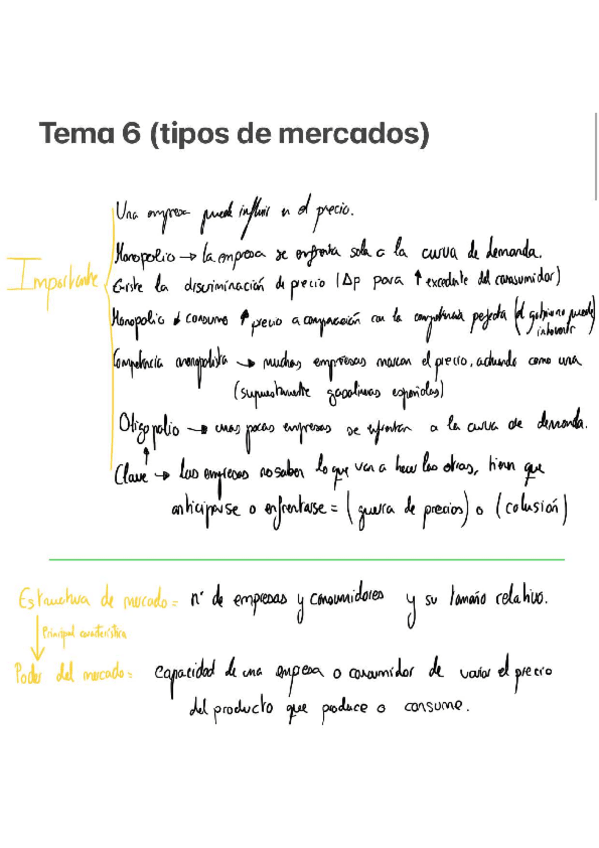 Tema 6 (tipos de mercados)
Una empresa puede influir en el precio.
Importante
Monopolio → la empresa se enfrenta sola a la curva de demanda.
Existe la discriminación de precio (Δp para ↑ excedente del consumidor)
Monopolio ↓ consumo ↑ precio a comparación con la competencia perfecta (el gobierno puede intervenir)
Competencia monopolista → muchas empresas marcan el precio, actuando como una
(supuestamente gasolineras españolas)
Oligopolio → unas pocas empresas se enfrentan a la curva de demanda.
Clave → Las empresas no saben lo que van a hacer las otras, tienen que
anticiparse o enfrentarse = (guerra de precios) o (colusión)
Estructura de mercado = nº de empresas y consumidores y su tamaño relativo.
Principal característica
Poder del mercado = capacidad de una empresa o consumidor de variar el precio
del producto que produce o consume.